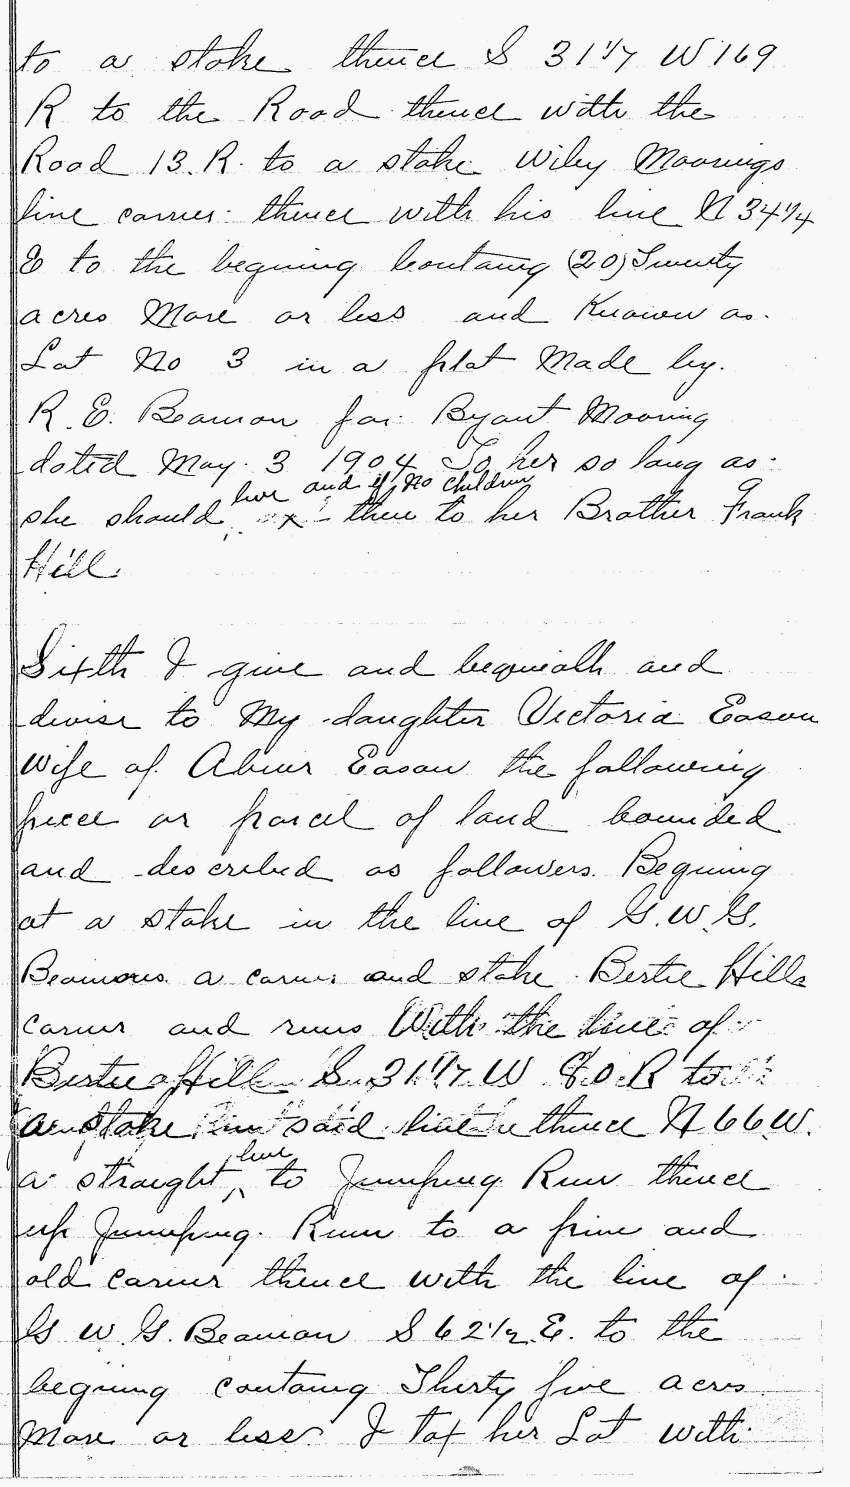 to a stake thence S 31 1/7 W 169
R to the Road thence with the
Road 13. R. to a stake Wiley Moorings
line corner thence with his line N 34 1/4
E to the begining containg (20) Twenty
acres More or less and Known as.
Lot No 3 in a plat Made by.
R. E. Beamon for Byant Mooring
dated May 3 1904 To her so long as
she should live and if no children then to her Brother Frank
Hill.
Sixth I give and bequeath and
devise to My daughter Victoria Eason
Wife of Abner Eason the following
piece or parcel of land bounded
and described as followers. Begining
at a stake in the line of G. W. G.
Beamons a corner and stake Bertie Hills
corner and runs With the line of
Bertie Hill S 31 1/7 W 80 R to
a stake in said line thence N 66 W.
a straight line to Jumping Run thence
up Jumping. Run to a pine and
old corner thence with the line of
G W. G. Beamon S 62 1/2 E. to the
begining containg Thirty five acres
More or less I tax her Lot with